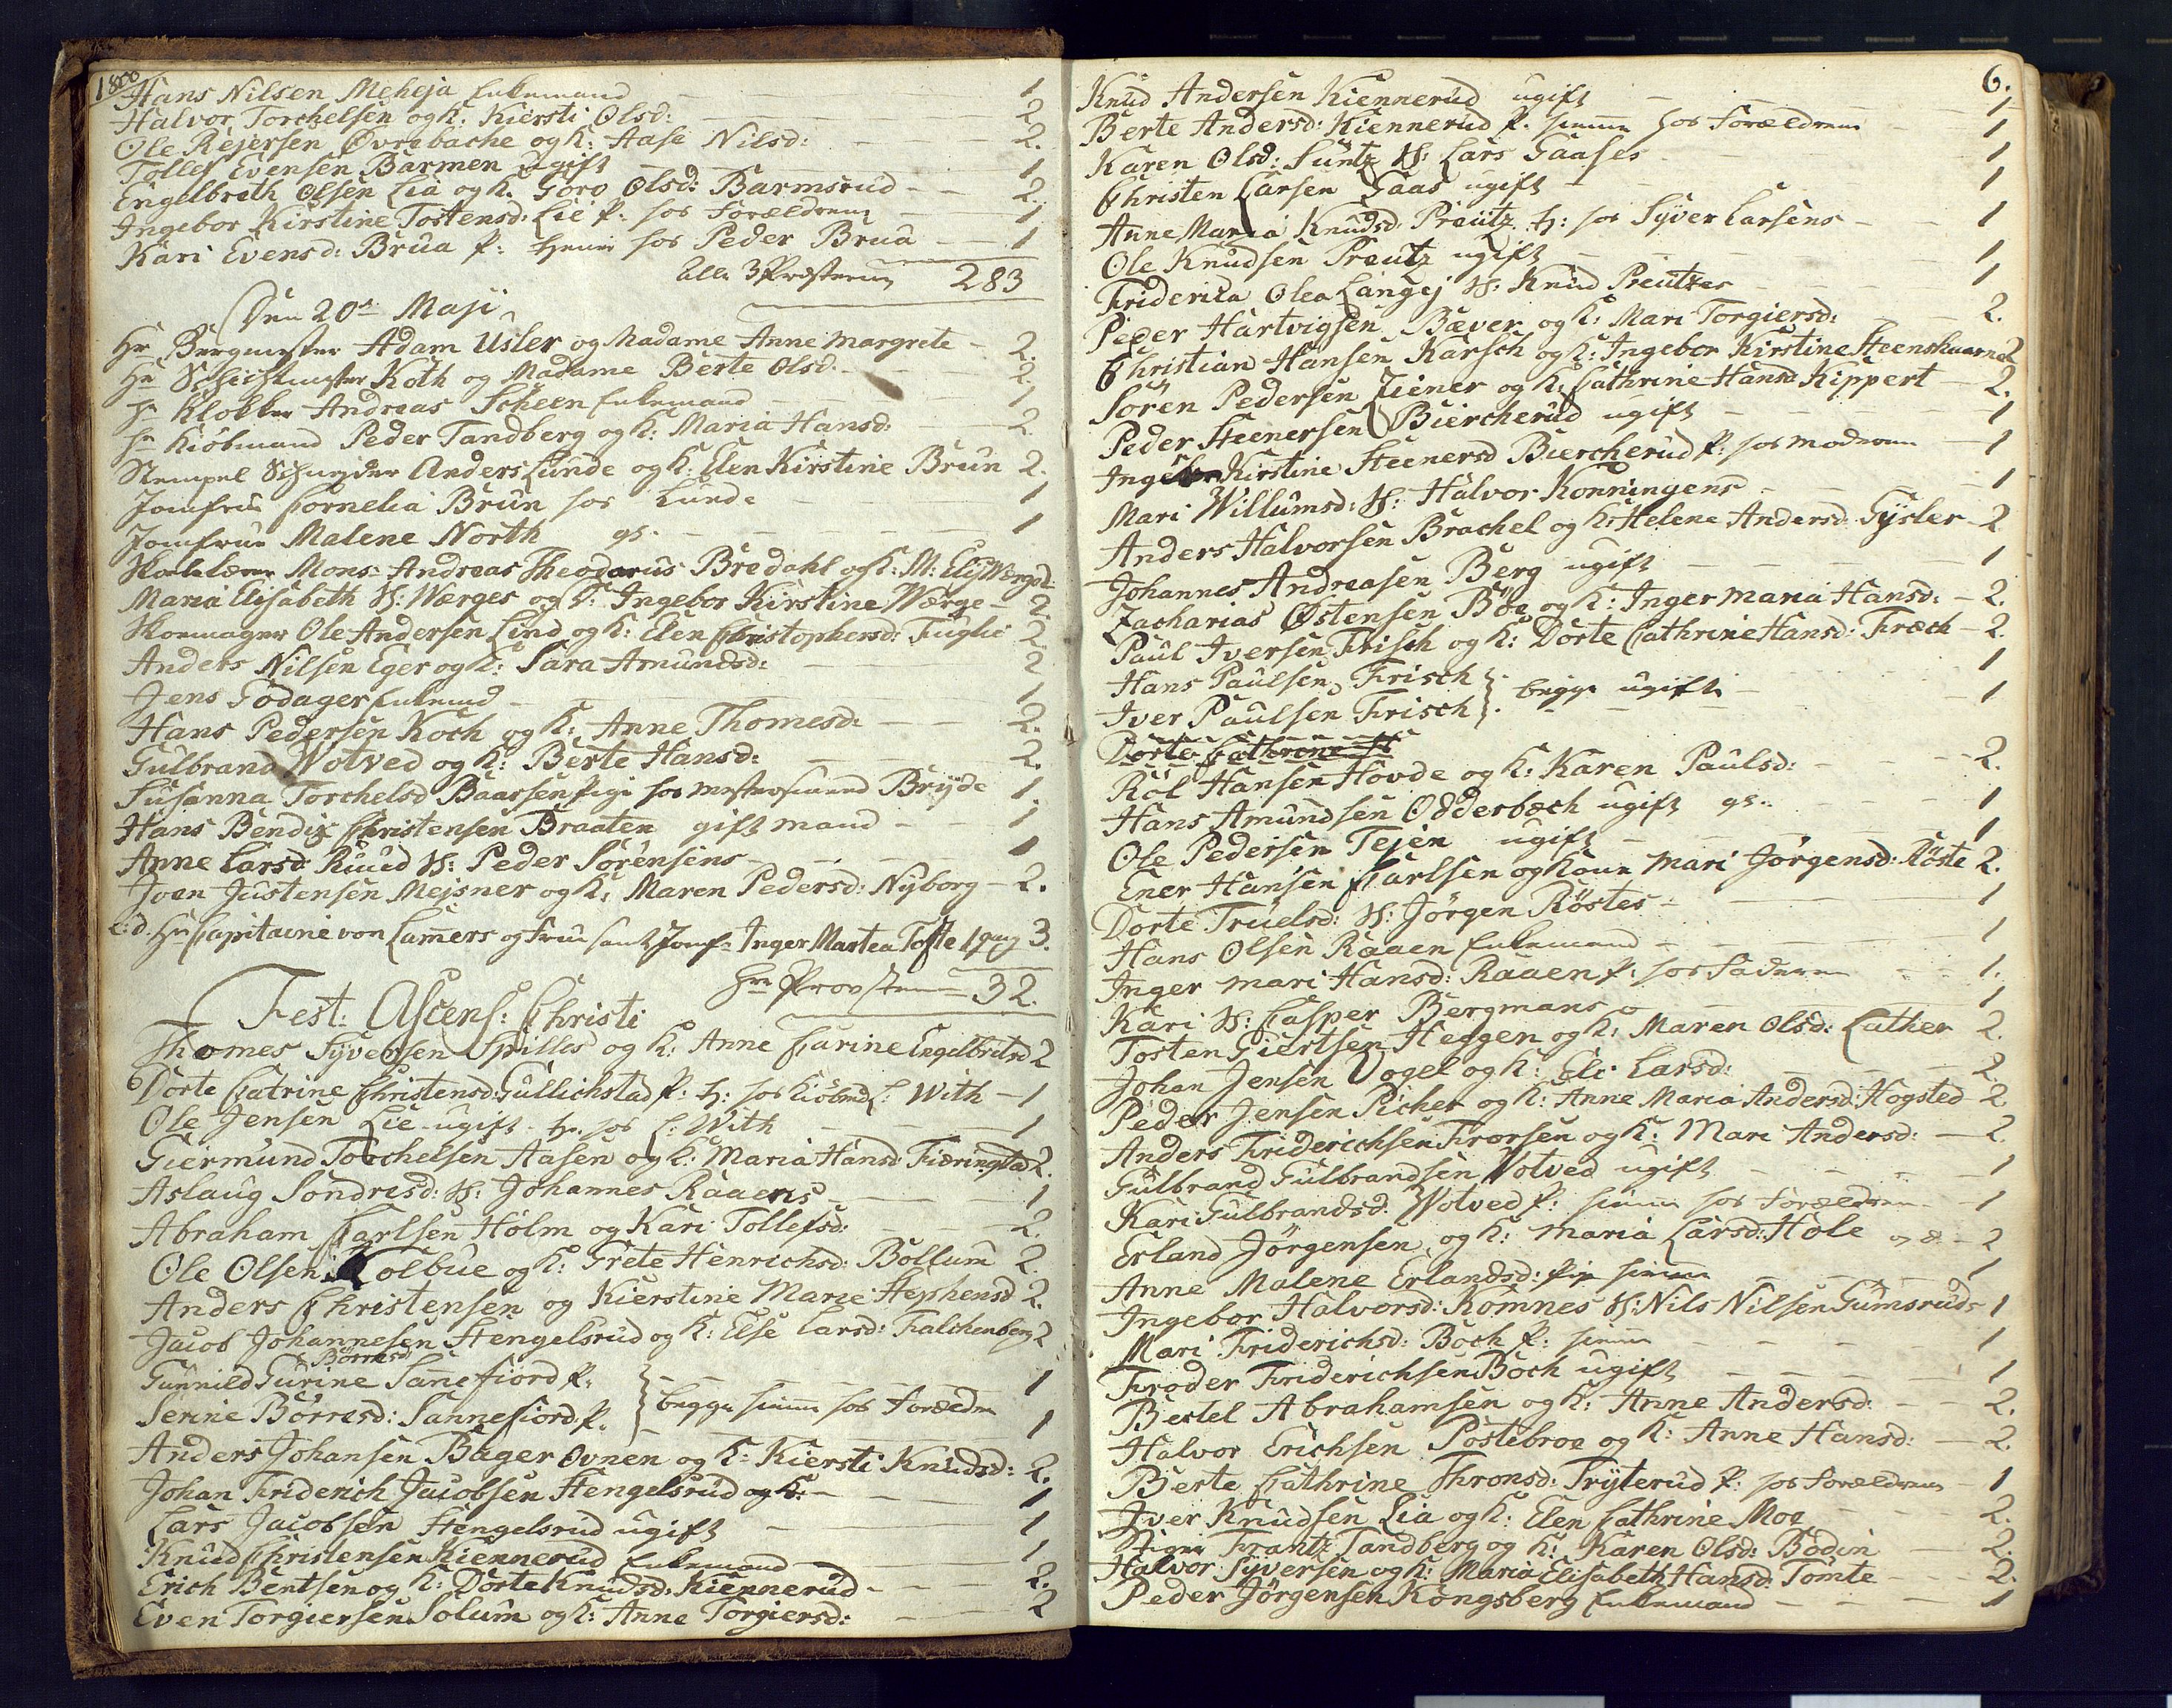 1800
Hans Nilsen Meheja Enkemand - 1
Halvor Torchelsen og K: Kiersti Olsd: - 2
Ole Rejersen Øvrebache og K: Aase Nilsd: - 2.
Tollef Evensen Barmen ugift - 1
Engelbreth Olsen Lia og K. Goro Olsd: Barmsrud - 2.
Ingebor Kirstine Tostensd: Lie P: hos Forældrene - 1
Kari Evensd: Brua P: hos Peder Brua - 1
alle 3 Præsterne 283
Den 20de Maji
Hr Bergmester Adam Usler og Madame Anne Margrete - 2.
Hr Schichtmester Koth og Madame Berte Olsd. - 2.
Hr Klokker Andreas Scheen Enkemand - 1
Hr Kiöbmand Peder Tandberg og K: Maria Hansd: 2.
Stempel Schnejder Anders Lunde og K: Elen Kirstine Brun 2.
Jomfrue Cornelia Brun hos Lunde - 1
Jomfrue Malene North gs. - 1
Skolelærer Mons: Andreas Theodorus Bredahl og K: M: Elis Wærgs 2.
Maria Elisabeth W: Wærges og D: Ingebor Kirstine Wærge - 2.
Skoemager Ole Andersen Lind og K: Elen Christophersd: Fuglie 2
Anders Nilsen Eger og K: Sara Amundsd: 2
Jens Godager Enkemd - 1
Hans Pedersen Koch og K: Anne Thomesd: - 2.
Gulbrand Wotved og K: Berte Hansd: 2.
Susanna Torchelsd Baassen Pige hos Mestersvend Bryde 1.
Hans Bendix Christensen Braaten gift mand - 1
Anne Larsd Ruud W: Peder Sörensens - 1
Joen Justensen Mejsner og K: Maren Pedersd: Nyborg - 2.
e:d. Hr Capitaine von Lamers og Frue samt Jomf: Inger Martea Tofte 1 gang 3.
Hr Provsten 32.
Fest: Ascens: Christi
Thomes Syversen Spilles og K: Anne Carine Engelbretsd 2
Dorte Catrine Christensd: Gullichstad P: tj: hos Kiöbmd C: With - 1
Ole Jensen Lie ugift tj. hos C: With - 1
Giermund Torchelsen Aasen og K: Maria Hansd Fiæringstad 2.
Aslaug Sondresd: W: Johannes Raaens - 1
Abraham Carlsen Holm og Kari Tollefsd: - 2.
Ole Olsen Kolbue og K: Grete Henrichsd: Bollum 2.
Anders Christensen og Kierstine Marie Stephensd 2.
Jacob Johannesen Stengelsrud og K: Else Larsd: Falchenberg 2
Börresd
Gunnild Gurine Sanefiord P. 1
Serine Börresd: Sannefiord P. } begge hiemme hos Forældr 1
Anders Johansen Bager Ovnen og K: Kiersti Knudsd: 2.
Johan Friderich Jacobsen Stengelsrud og K: - 1
Lars Jacobsen Stengelsrud ugift - 1
Knud Christensen Kiennerud Enkemand - 1
Erich Bentsen og K: Dorte Knudsd: Kiennerud - 2.
Even Torgiersen Solum og K: Anne Torgiersd: - 2
6.
Knud Andersen Kiennerud ugift - 1
Berte Andersd: Kiennerud P. hiemme hos Forældrene - 1
Karen Olsd: Suntz W: Lars Gaases - 1
Christen Larsen Gaas ugift - 1
Anne Maria Knudsd. Preutz tj: hos Syver Larsens - 1
Ole Knudsen Preutz ugift - 1
Friderica Olea Langej W: Knud Preutzes - 1
Peder Hartvigsen Bæver og K: Mari Torgiersd: 2.
Christian Hansen Karsch og K: Ingebor Kirstine Steenshuarne 2
Soren Pedersen Ziener og K: Cathrine Hansd Kippert - 2.
Peder Steenersen Biercherud ugift - 1
Ingebor Kirstine Steenersd Biercherud P: hos Moderen - 1
Mari Willumsd: W: Halvor Konningens - 1
Anders Halvorsen Brachel og K: Helene Andersd Gysler - 2
Johannes Andreasen Berg ugift - 1
Zacharias Østensen Böe og K: Inger Maria Hansd: - 2.
Paul Iversen Frisch og K: Dorte Cathrine Hansd: Fræch - 2.
Hans Paulsen Frisch 1
Iver Paulsen Frisch } begge ugifte - 1
Dorte Cathrine H
Röl Hansen Hovde og K: Karen Paulsd: - 2.
Hans Amundsen Odderbæch ugift gs. - 1
Ole Pedersen Tejen ugift - 1
Ener Hansen Carlsen og Kone Mari Jörgensd: Röste 2.
Dorte Truelsd: W: Jörgen Röstes - 1
Hans Olsen Raaen Enkemand - 1
Inger Mari Hansd: Raaen P: hos Faderen - 1.
Kari W: Casper Bergmans - 1
Tosten Giertsen Heggen og K: Maren Olsd: Luther 2.
Johan Jensen Vogel og K: Eli Larsd: 2.
Peder Jensen Picher og K: Anne Maria Andersd: Hogsted 2.
Anders Friderichsen Frorsen og K: Mari Andersd: - 2.
Gulbrand Gulbrandsen Wotved ugift - 1
Kari Gulbrandsd. Wotved P: hiemme hos Forældrene - 1
Erland Jörgensen og K: Maria Larsd: Hole - 2
Anne Malene Erlandsd: Pige hiemme - 1
Ingebor Halvorsd: Komnes W: Nils Nilsen Gumsruds 1
Mari Friderichsd: Boch P: hiemme - 1
Froder Friderichsen Boch ugift - 1
Bertel Abrahamsen og K: Anne Andersd: - 2.
Halvor Erichsen Postebroe og K: Anne Hansd: - 2.
Berte Cathrine Thronsd: Tryterud P: hos Forældrene - 1
Iver Knudsen Lia og K: Elen Cathrine Moe - 2.
Stiger Frantz Tandberg og K: Karen Olsd: Bodin - 2.
Halvor Syversen og K: Maria Elisabeth Hansd: Tomte - 2.
Peder Jörgensen Kongsberg Enkemand - 1